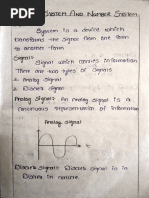 System And Number System
System is a device which
transforms the signal from one form
to another form
Signal:-
Signal which carries information
There are two types of signals
Analog signal
Discret signal
Analog Signal: An analog signal is a
continuous representation of information
Analog signal
Discret signal: Discret signal is in
Discret in nature